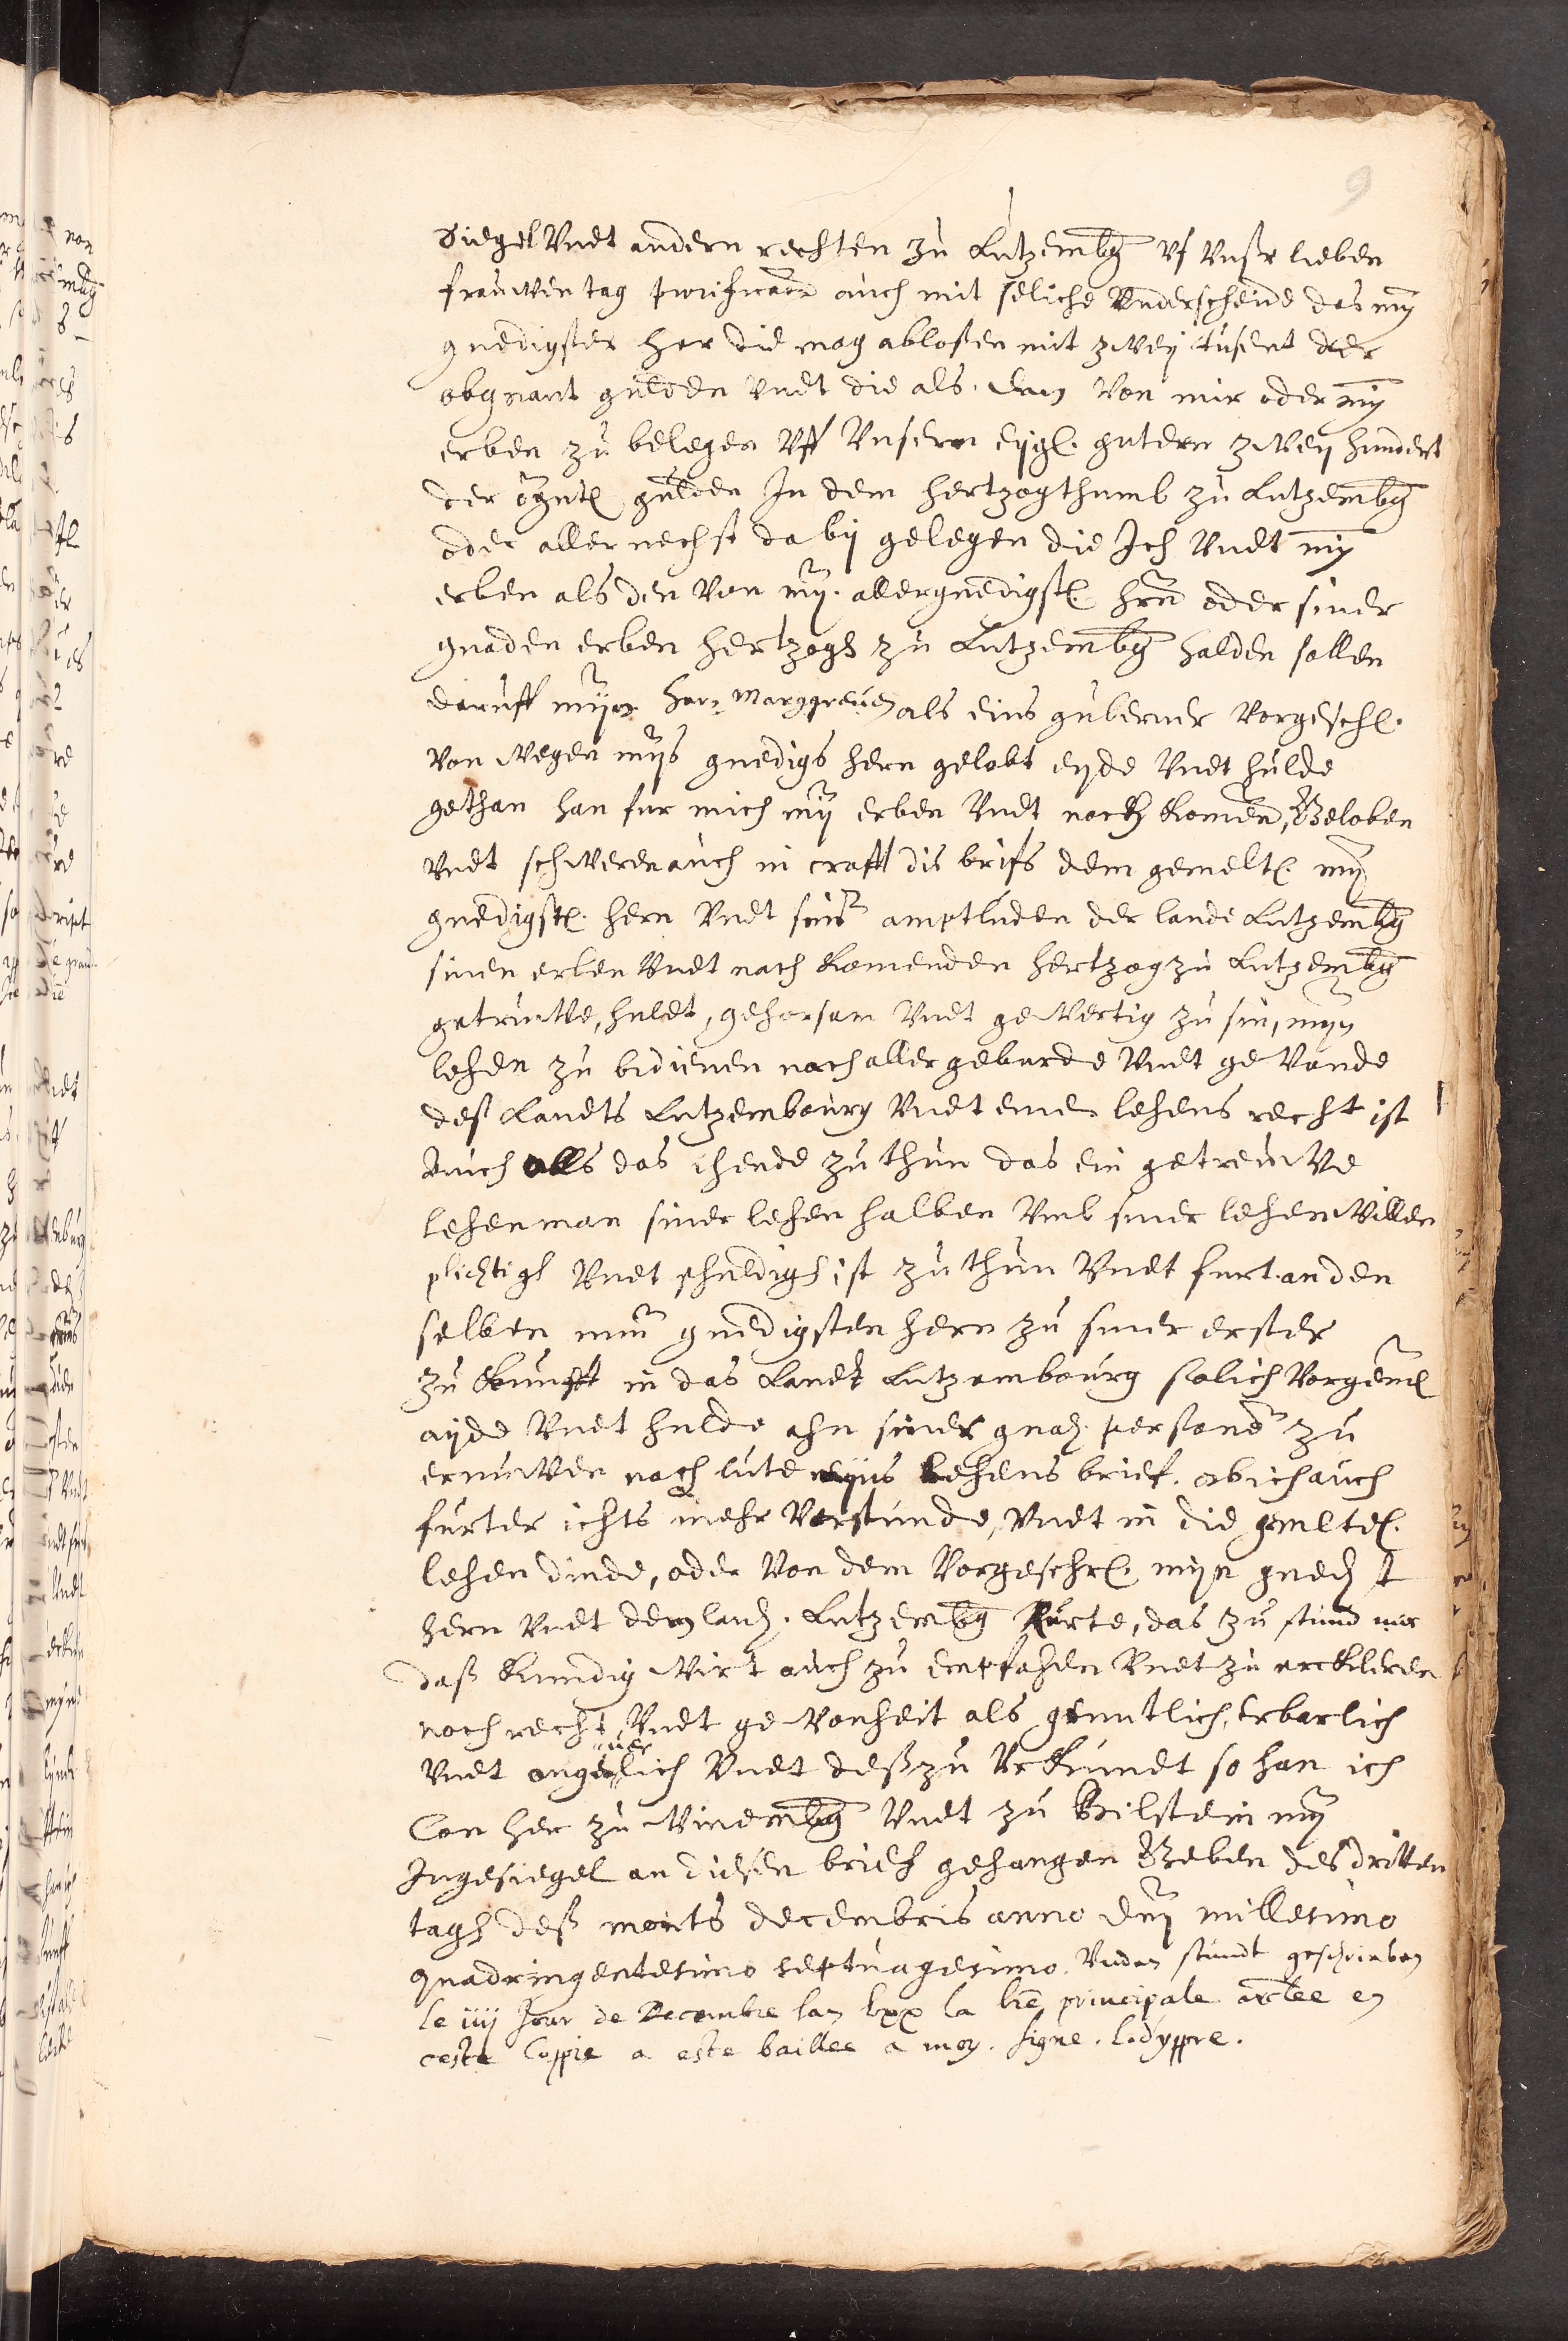 9
Siegel Vndt andern rechten zu Lutzembg Vf Vnßer lieben
frauwen tag purificaon auch mit seliche Vnderscheide das my
gnedigster her die mag ablosen mit zwey tusent der
obgnant gulden Vndt die als dan Von mir oder my
erben zu belegen Vff Vnsern eygl. gutern zwey hundert
der ogntl gulden In dem hertzogthumb zu Lutzembg
oder aller nechst da by gelegen die Ich Vndt my
erben als den Von my. allergnedigstl hrn oder siner
gnaden erben hertzogh zu Lutzembg halden sollen
daruff myn hern Marggreuen als eins guberner Vorgeschl.
Von wegen mys gnedigs hern gelobt eyde Vndt hulde
gethan han fur mich my erben Vndt noch komen, Geloben
Vndt schweren auch in crafft dis briefs dem gemeltl. my
gnedigstl. hern Vndt sins amptluden der lande Lutzembg
sinen erben Vndt nach komenden hertzog zu Lutzembg
getruwe, huldt, gehorsam Vndt gewertig zu sin, myn
lehen zu bedienen nach aller geburde Vndt gewonde
deß Landts Lutzembourg Vndt eine lehens recht ist
Auch alls das ihende zu thun das ein getreuwe
lehenman siner lehen halben Vmb siner lehen willen
plichtigh Vndt schuldigh ist zu thun Vndt furt an den
selben min gnedigsten hern zu siner erster
zu kunfft in das Landt Lutzembourg solich Vorgeml
ayde Vndt hulde ahn siner gnad. persone zu
ernuwen nach lute myns Lehens brief. ob ich auch
furter ichts mehr Verstunde, Vndt in die gemeltel.
lehen diende, oder Von dem Vorgeschrl. myn gned st
hern Vndt dem land. Lutzembg Rurte, das zu stund mir
daß kundig wirt auch zu empfahen Vndt zu erckleren
noch recht, Vndt gewonheit als gemutlich, erbarlich
Vndt ongeuerlich Vndt deß zu Vrkundt so han ich
Con her zu Winembg Vndt zu Bilstein my
Ingesiegel an diesen brieff gehangen Geben des dritten
tagh deß monts decembris anno dni millesimo
quadringentesimo septuagesimo. Vnden stundt geschrieben
le iiij Jour de Decembre lan lxx la lre principale
ceste Coppie a este baillee a moy. signe. lodyppre.